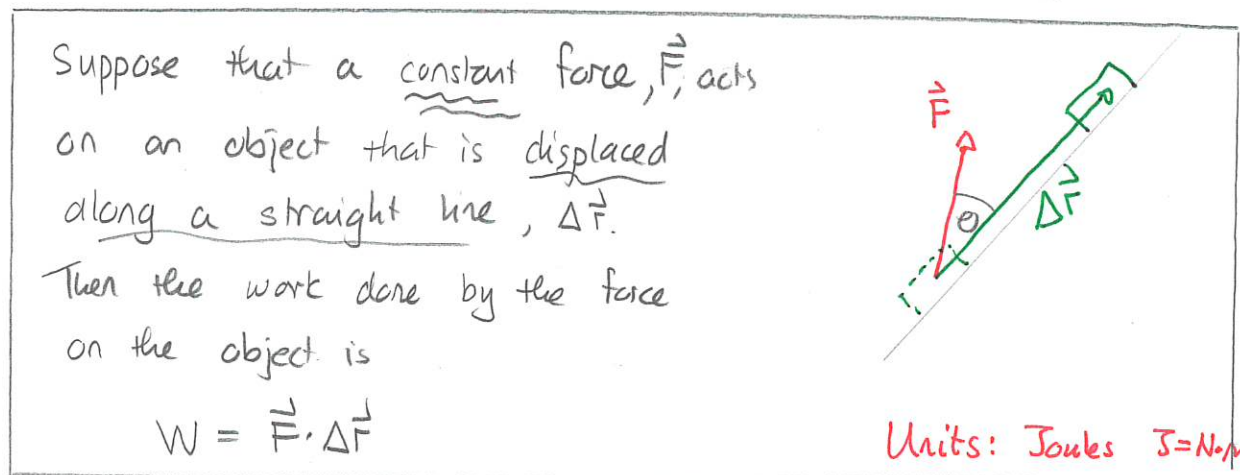 Suppose that a constant force, F⃗, acts
on an object that is displaced
along a straight line, Δr⃗.
Then the work done by the force
on the object is
W = F⃗ · Δr⃗
F⃗
θ
Δr⃗
Units: Joules J=N·m